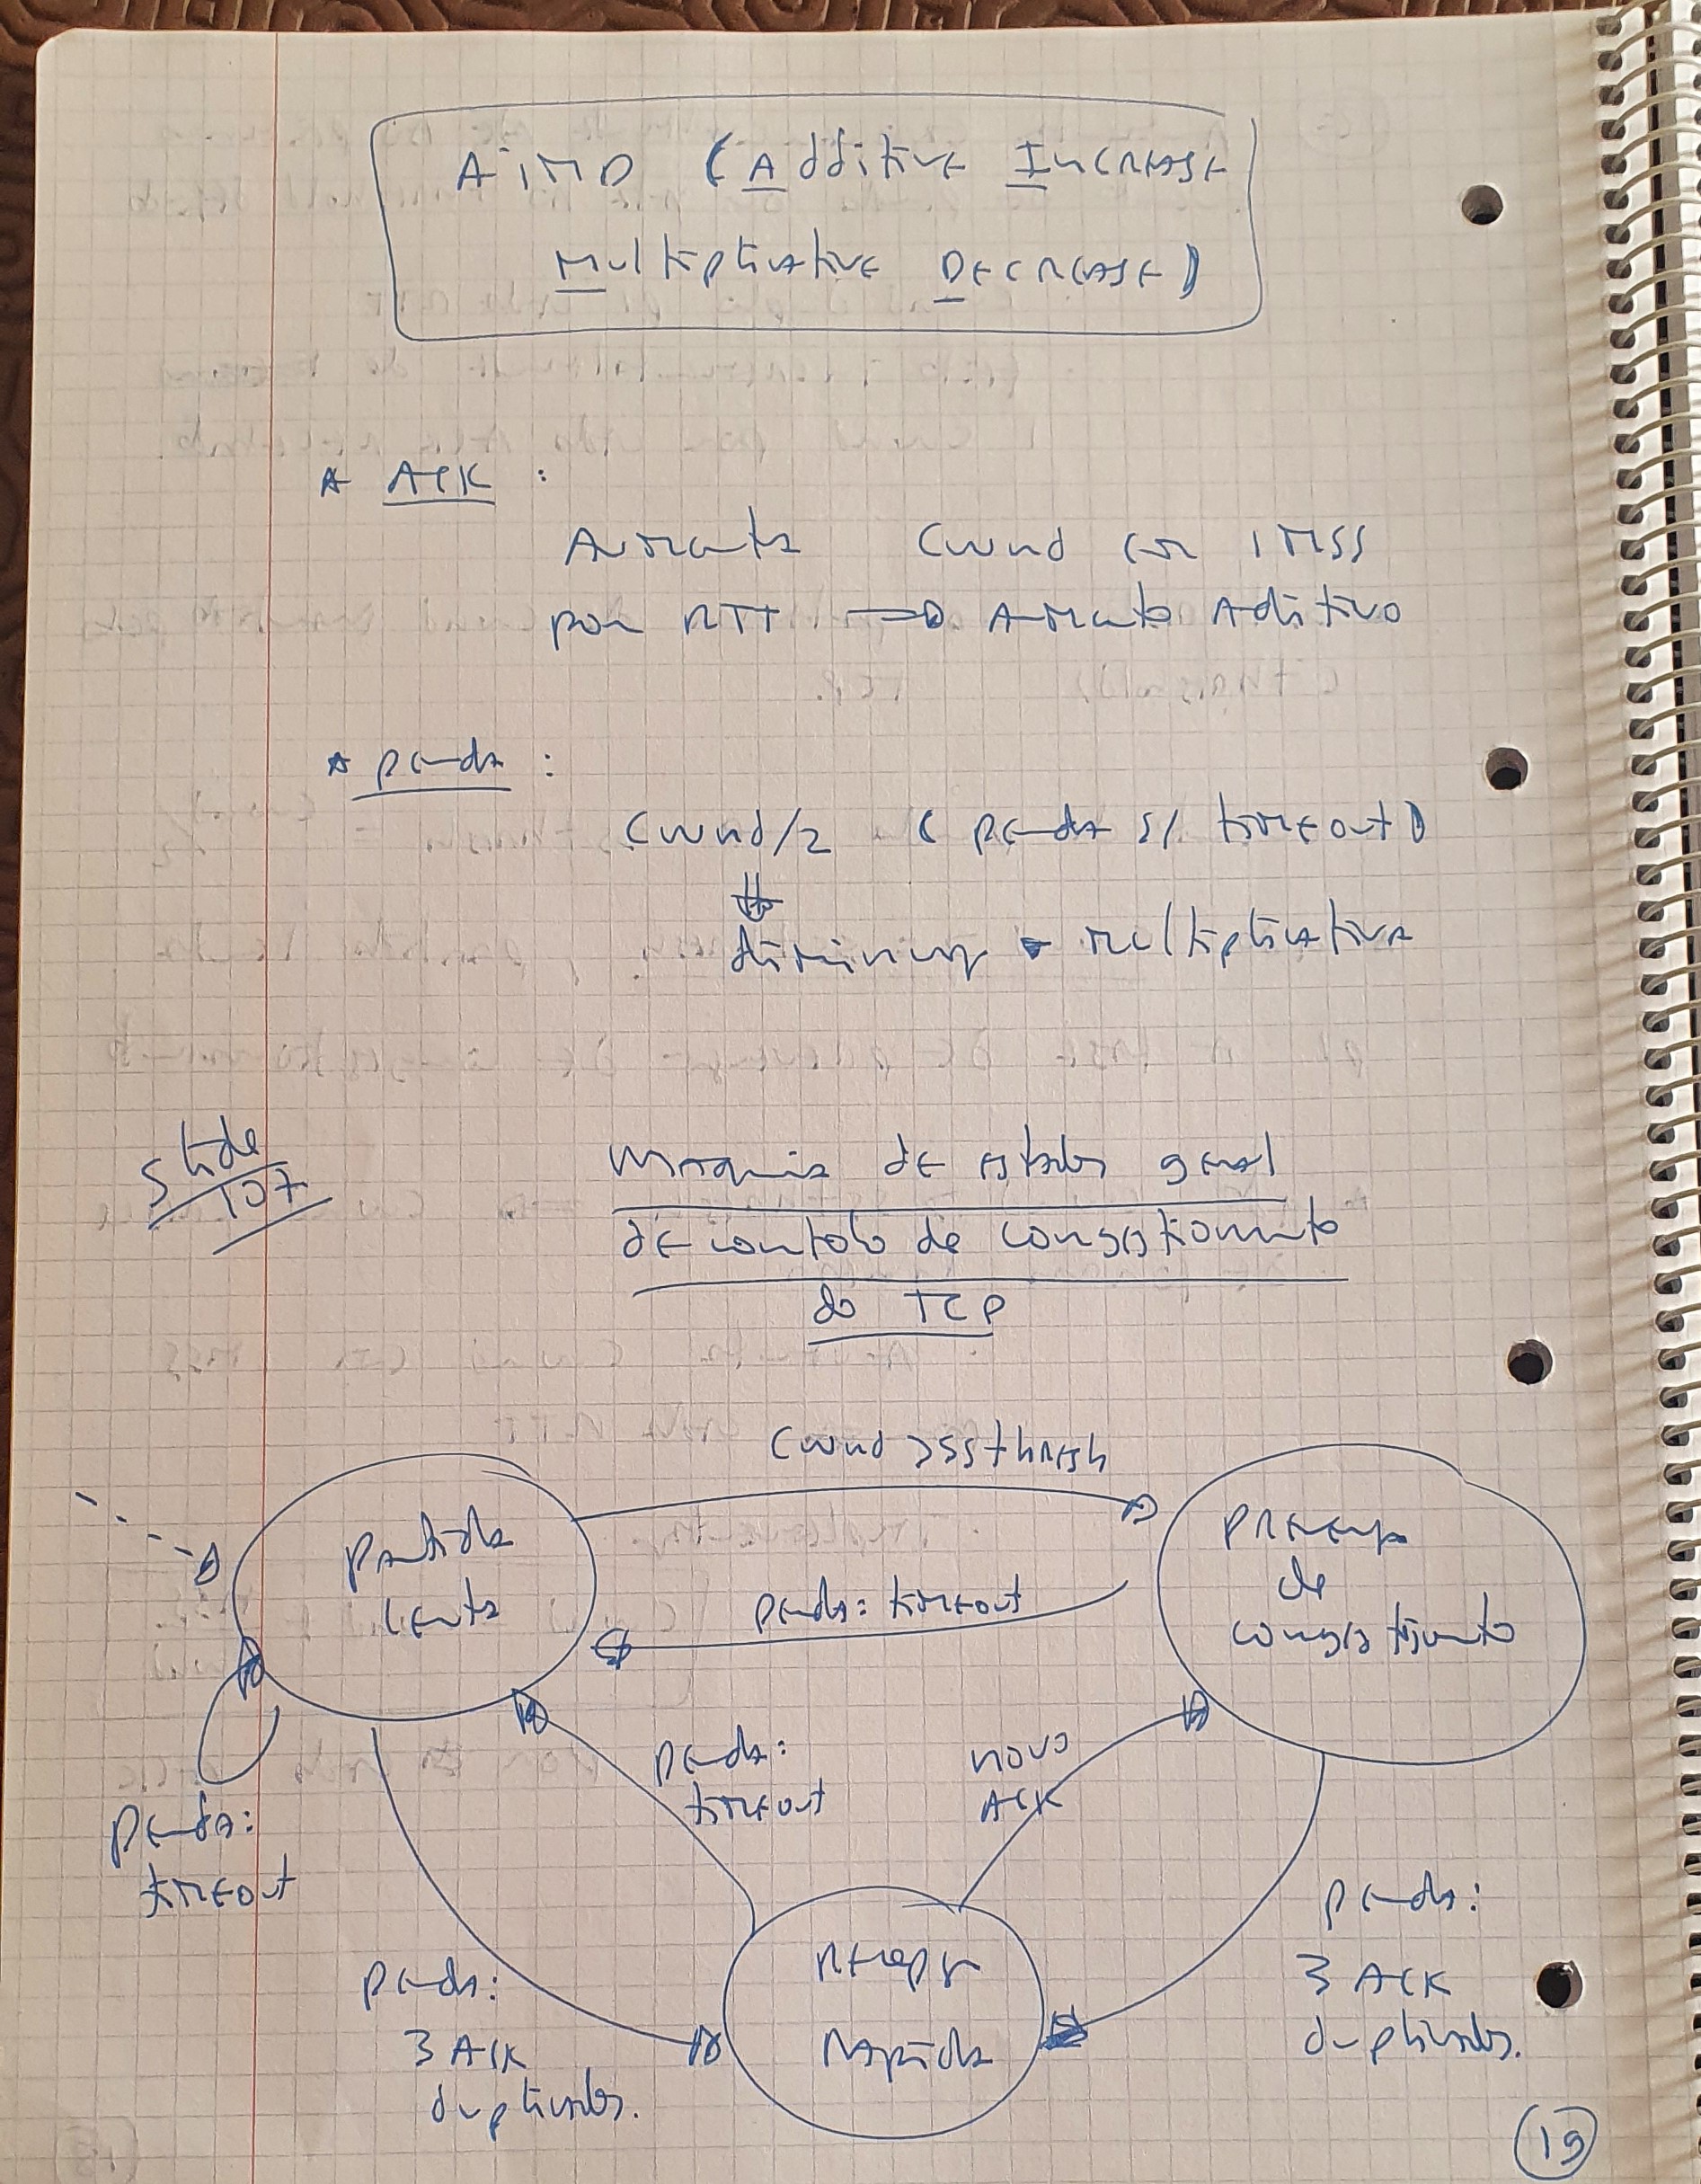 AIMD (Additive Increase
Multiplicative Decrease)
* ACK :
Aumenta cwnd em 1 MSS
por RTT => Aumento Aditivo
* perda :
cwnd/2 (perda s/ timeout)
diminuição multiplicativa
Slide
107
Máquina de estados geral
de controlo de congestionamento
do TCP
cwnd > ssthresh
Partida
Lenta
Prevenção
de
congestionamento
perda: timeout
perda:
timeout
novo
ACK
perda:
timeout
perda:
3 ACK
duplicados.
Recepção
Rápida
perda:
3 ACK
duplicados.
19